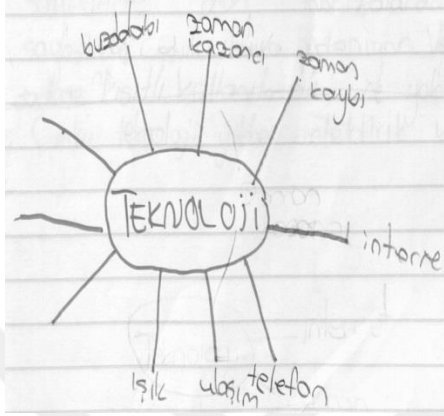 buzdolabı
zaman
kazancı
zaman
kaybı
TEKNOLOJİ
interne
Işık
ulaşım
telefon